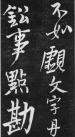 不如覼文字丹
鉛事點勘